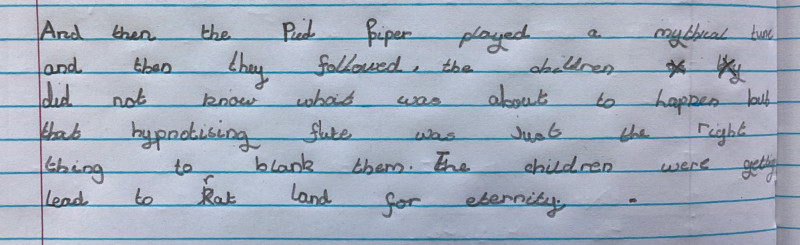 And then the Pied Piper played a mythical tune
and then they followed, the children
did not know what was about to happen but
that hypnotising flute was just the right
thing to blank them. The children were getting
lead to rat land for eternity.